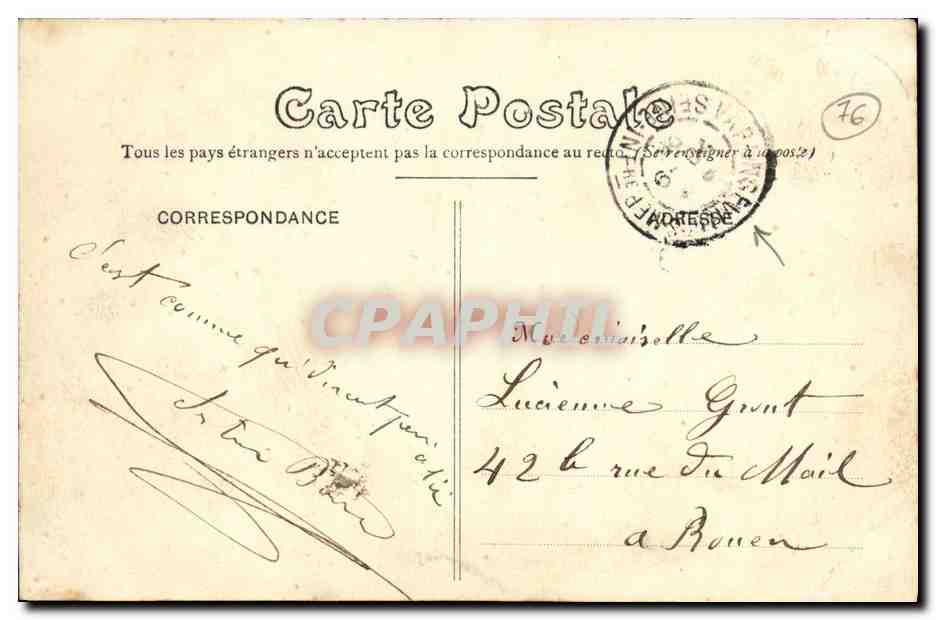 Carte Postale
Tous les pays étrangers n'acceptent pas la correspondance au recto (Se renseigner à la poste)
76
CORRESPONDANCE
ADRESSE
C'est comme qui
CPAPHIL
Mademoiselle
Lucienne Grout
42b rue du Mail
a Rouen